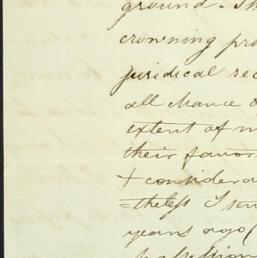 ground. Th
crowning pro
juridical rec
all chance o
extent of m
their favor
+ considera
=theless I
years ago (